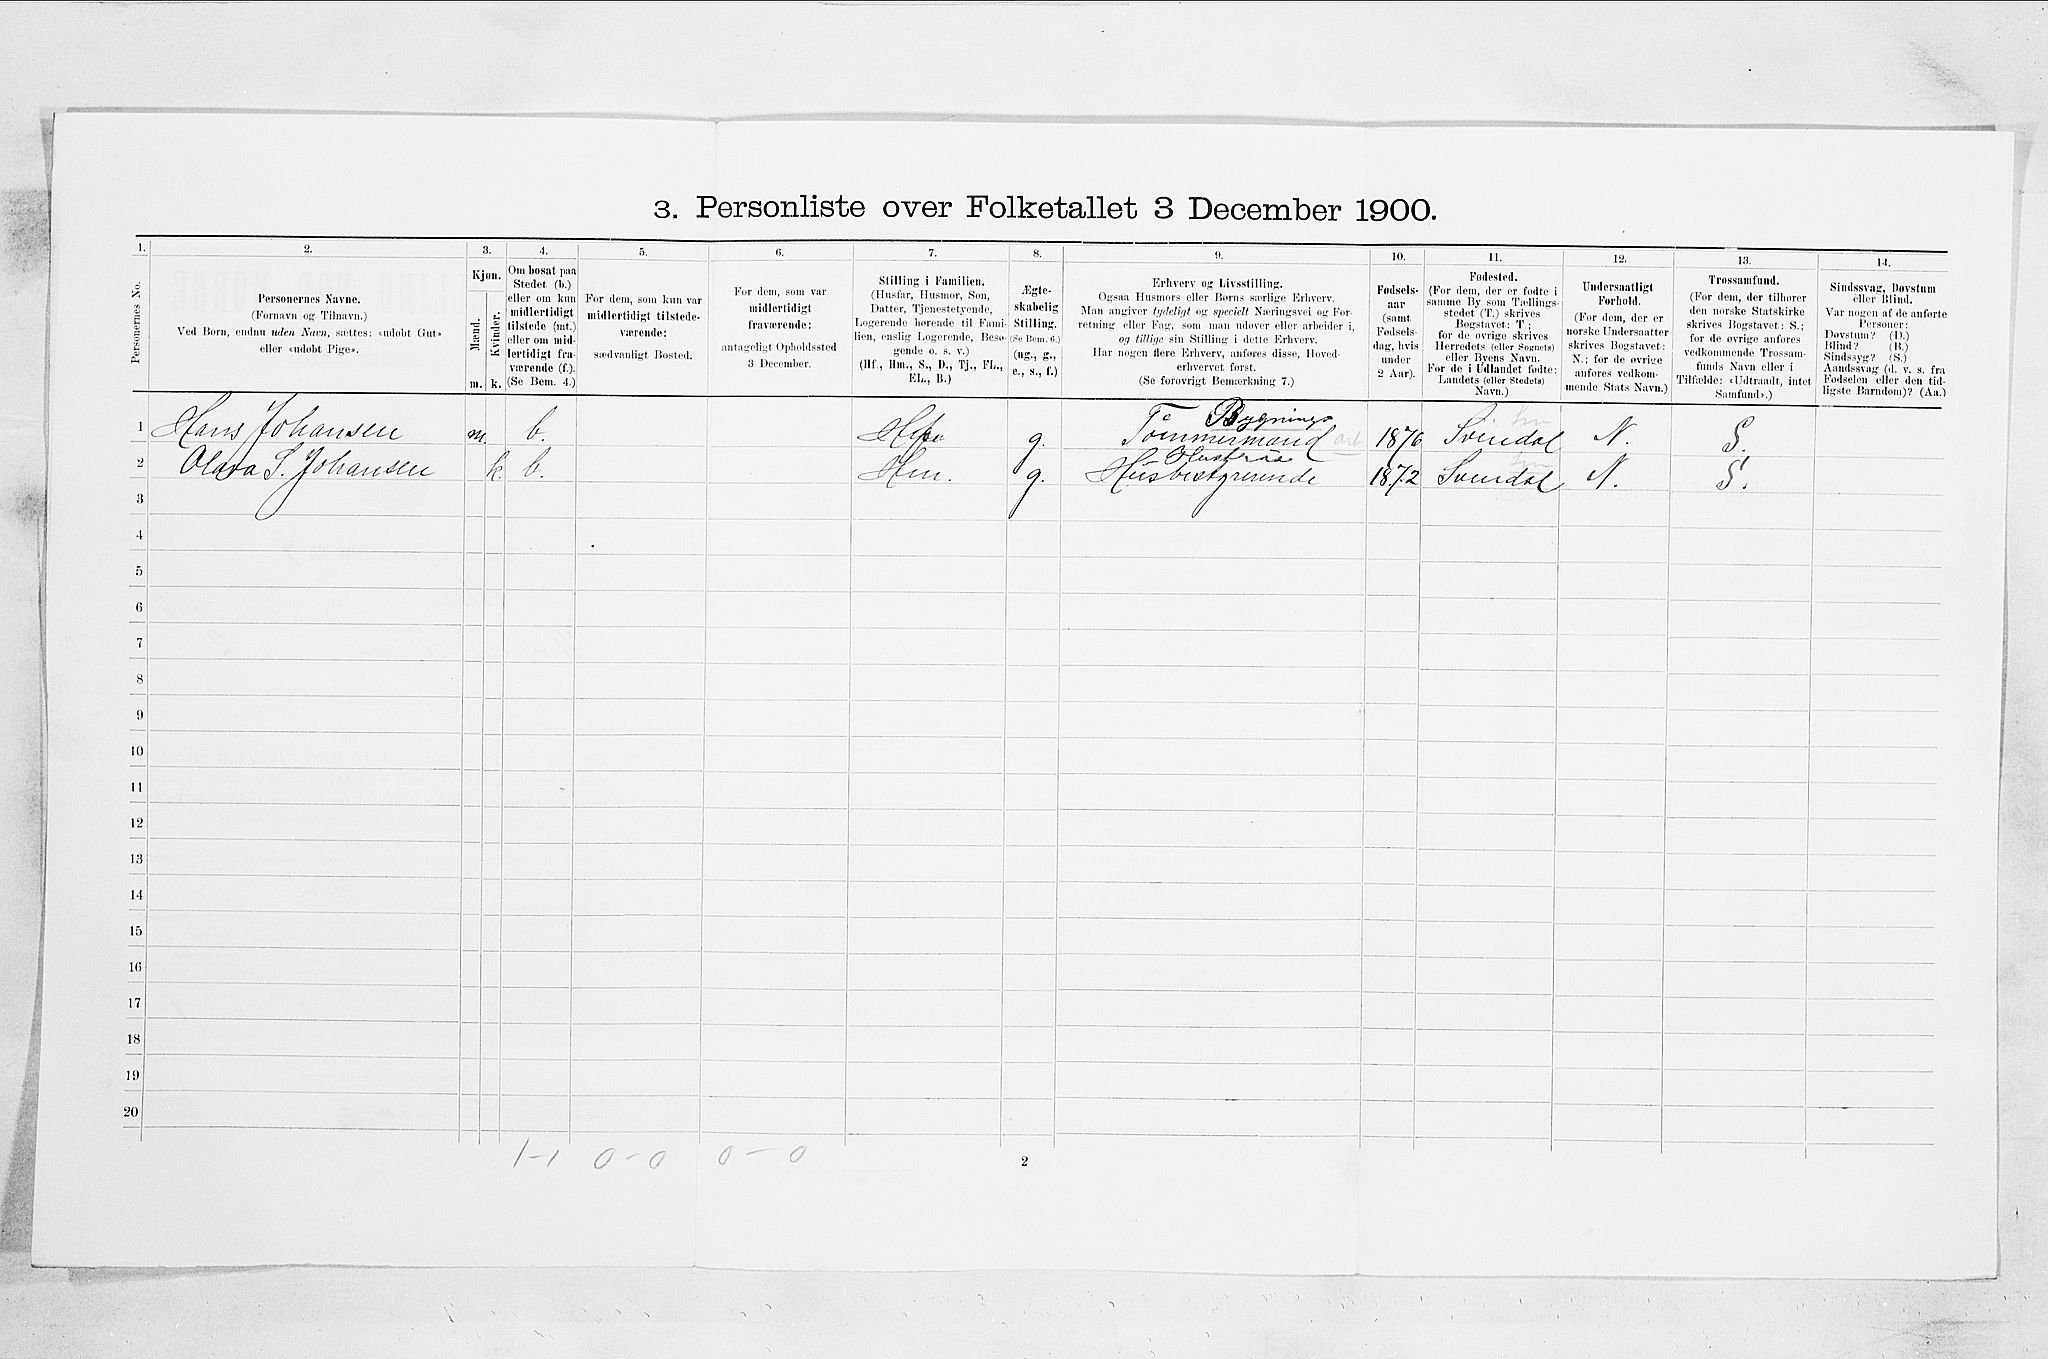 3. Personliste over Folketallet 3 December 1900.
1. 2. 3. 4. 5. 6. 7. 8. 9. 10. 11. 12. 13. 14.
Personernes No.
Personernes Navne.
(Fornavn og Tilnavn.)
Ved Børn, endnu uden Navn, sættes: «udøbt Gut»
eller «udøbt Pige».
Kjøn.
Mænd.
Kvinder.
m. k.
Om bosat paa
Stedet (b.)
eller om kun
midlertidigt
tilstede (mt.)
eller om mid-
lertidigt fra-
værende (f.).
(Se Bem. 4.)
For dem, som kun var
midlertidigt tilstede-
værende:
sædvanligt Bosted.
For dem, som var
midlertidigt
fraværende:
antageligt Opholdssted
3 December.
Stilling i Familien.
(Husfar, Husmor, Søn,
Datter, Tjenestetyende,
Logerende hørende til Fami-
lien, enslig Logerende, Besø-
gende o. s. v.)
(Hf., Hm., S., D., Tj., FL.,
EL., B.)
Ægte-
skabelig
Stilling.
(Se Bem. 6.)
(ug., g.,
e., s., f.)
Erhverv og Livsstilling.
Ogsaa Husmors eller Børns særlige Erhverv.
Man angiver tydeligt og specielt Næringsvei og For-
retning eller Fag, som man udover eller arbeider i,
og tillige sin Stilling i dette Erhverv.
Har nogen flere Erhverv, anføres disse, Hoved-
erhvervet først.
(Se forøvrigt Bemærkning 7.)
Fødsels-
aar
(samt
Fødsels-
dag, hvis
under
2 Aar).
Fødested.
(For dem, der er fødte i
samme By som Tællings-
stedet (T.) skrives
Bogstavet: T;
for de øvrige skrives
Herredets (eller Sognets)
eller Byens Navn.
For de i Udlandet fødte:
Landets (eller Stedets)
Navn.)
Undersaatligt
Forhold.
(For dem, der er
norske Undersaatter
skrives Bogstavet:
N.; for de øvrige
anføres vedkom-
mende Stats Navn.)
Trossamfund.
(For dem, der tilhører
den norske Statskirke
skrives Bogstavet: S.;
for de øvrige anføres
vedkommende Trossam-
funds Navn eller i
Tilfælde: «Udtraadt, intet
Samfund».)
Sindssvag, Døvstum
eller Blind.
Var nogen af de anførte
Personer:
Døvstum? (D.)
Blind? (B.)
Sindssyg? (S.)
Aandssvag (d. v. s. fra
Fødselen eller den tid-
ligste Barndom)? (Aa.)
Bygnings
1 Hans Johansen m. b. g. Tømmermand arb 1876 Svindal N. S.
2 Olava S. Johansen k. b. Hm. g. Husbestyrende 1872 Svindal N. S.
3
4
5
6
7
8
9
10
11
12
13
14
15
16
17
18
19
20
1-1 0-0 0-0
2